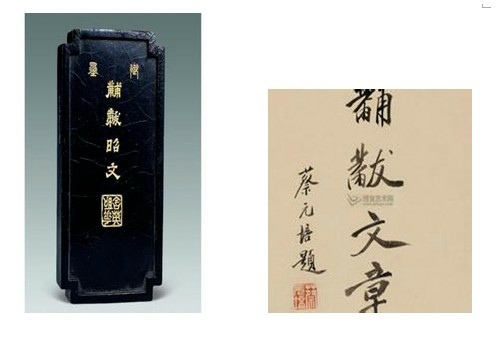 墨
黼黻昭文
黼黻文章
蔡元培題